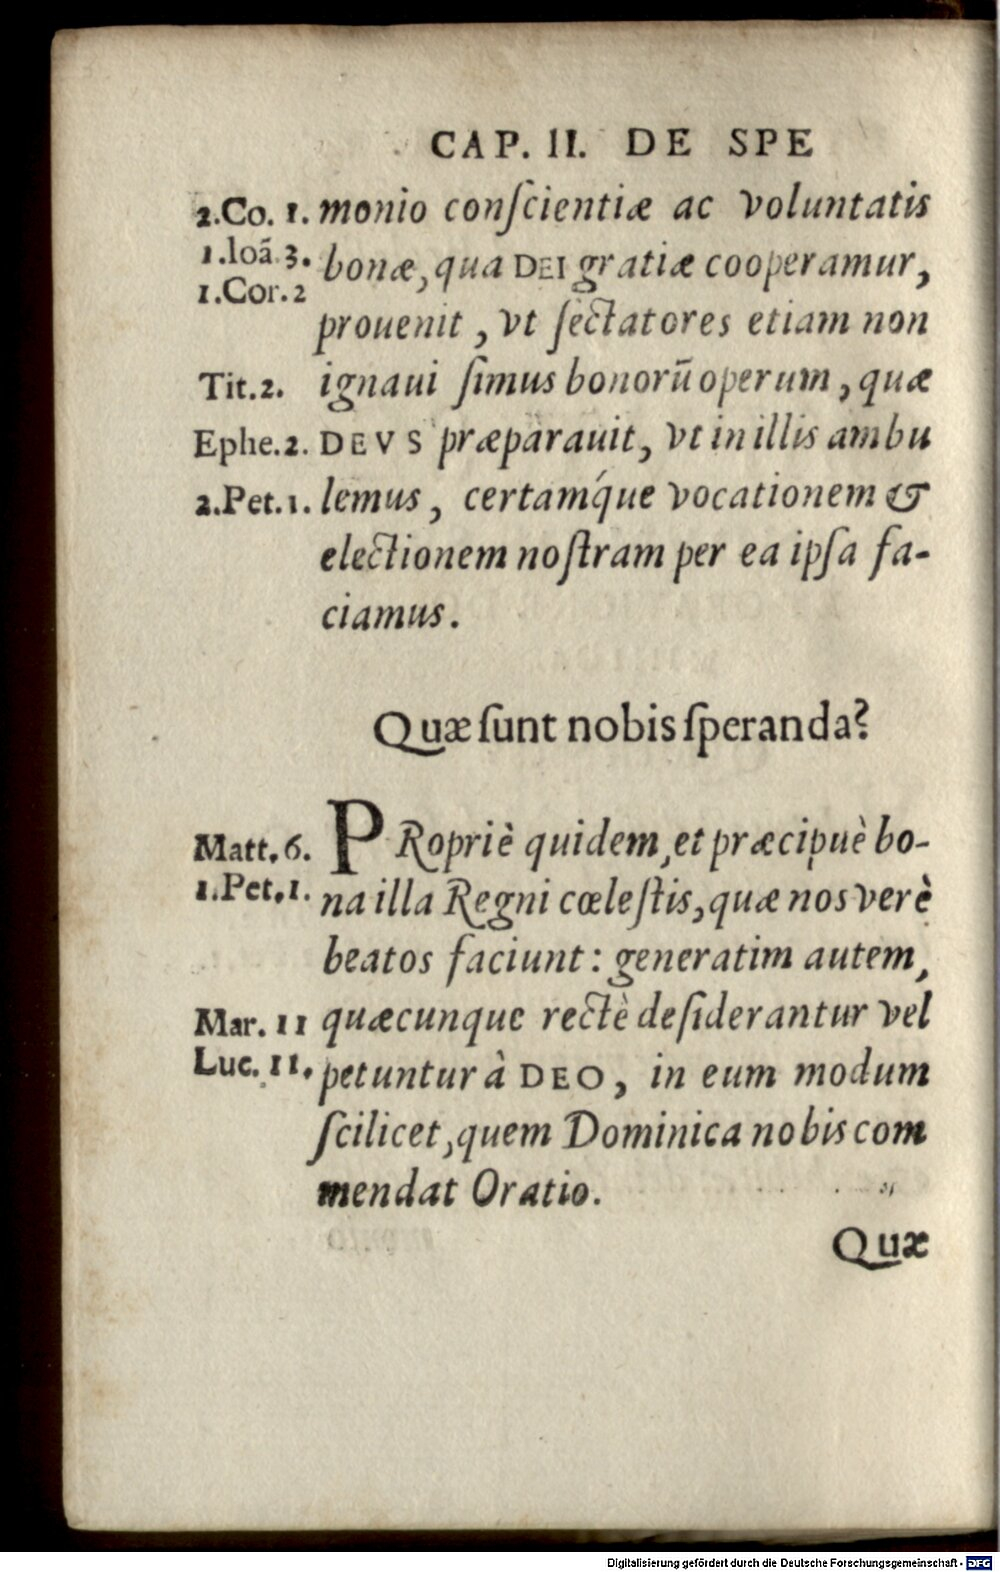 CAP. II. DE SPE
2.Co. 1. monio conſcientiæ ac voluntatis
1.Ioã 3. bonæ, qua DEI gratiæ cooperamur,
1.Cor. 2
prouenit, vt ſectatores etiam non
Tit. 2. ignaui ſimus bonorũ operum, quæ
Ephe. 2. DEVS præparauit, vt in illis ambu
2.Pet. 1. lemus, certamq́ue vocationem &
electionem noſtram per ea ipſa fa-
ciamus.
Quæ ſunt nobis ſperanda?
Matt. 6. PRopriè quidem, et præcipuè bo-
1.Pet. 1. na illa Regni cœleſtis, quæ nos verè
beatos faciunt: generatim autem,
Mar. 11 quæcunque rectè deſiderantur vel
Luc. 11. petuntur à DEO, in eum modum
ſcilicet, quem Dominica nobis com
mendat Oratio.
Quæ
Digitalisierung gefördert durch die Deutsche Forschungsgemeinschaft - DFG